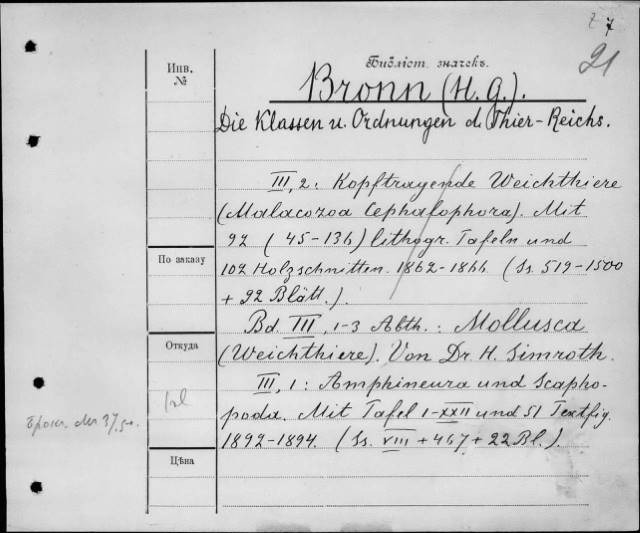 7
21
Инв.
№
Библіот. значекъ.
Bronn (H. G.).
Die Klassen u. Ordnungen d. Thier-Reichs.
III, 2: Kopftragende Weichthiere
(Malacozoa Cephalophora). Mit
92 (45-136) lithogr. Tafeln und
По заказу
102 Holzschnitten. 1862-1866. (Ss. 519-1500
+ 92 Blätt.).
Bd. III, 1-3 Abth.: Mollusca
Откуда
(Weichthiere). Von Dr. H. Simroth.
III, 1: Amphineura und Scapho-
poda. Mit Tafel I-XXII und 51 Textfig.
1892-1894. (Ss. VIII + 467 + 22 Bl.).
Цѣна